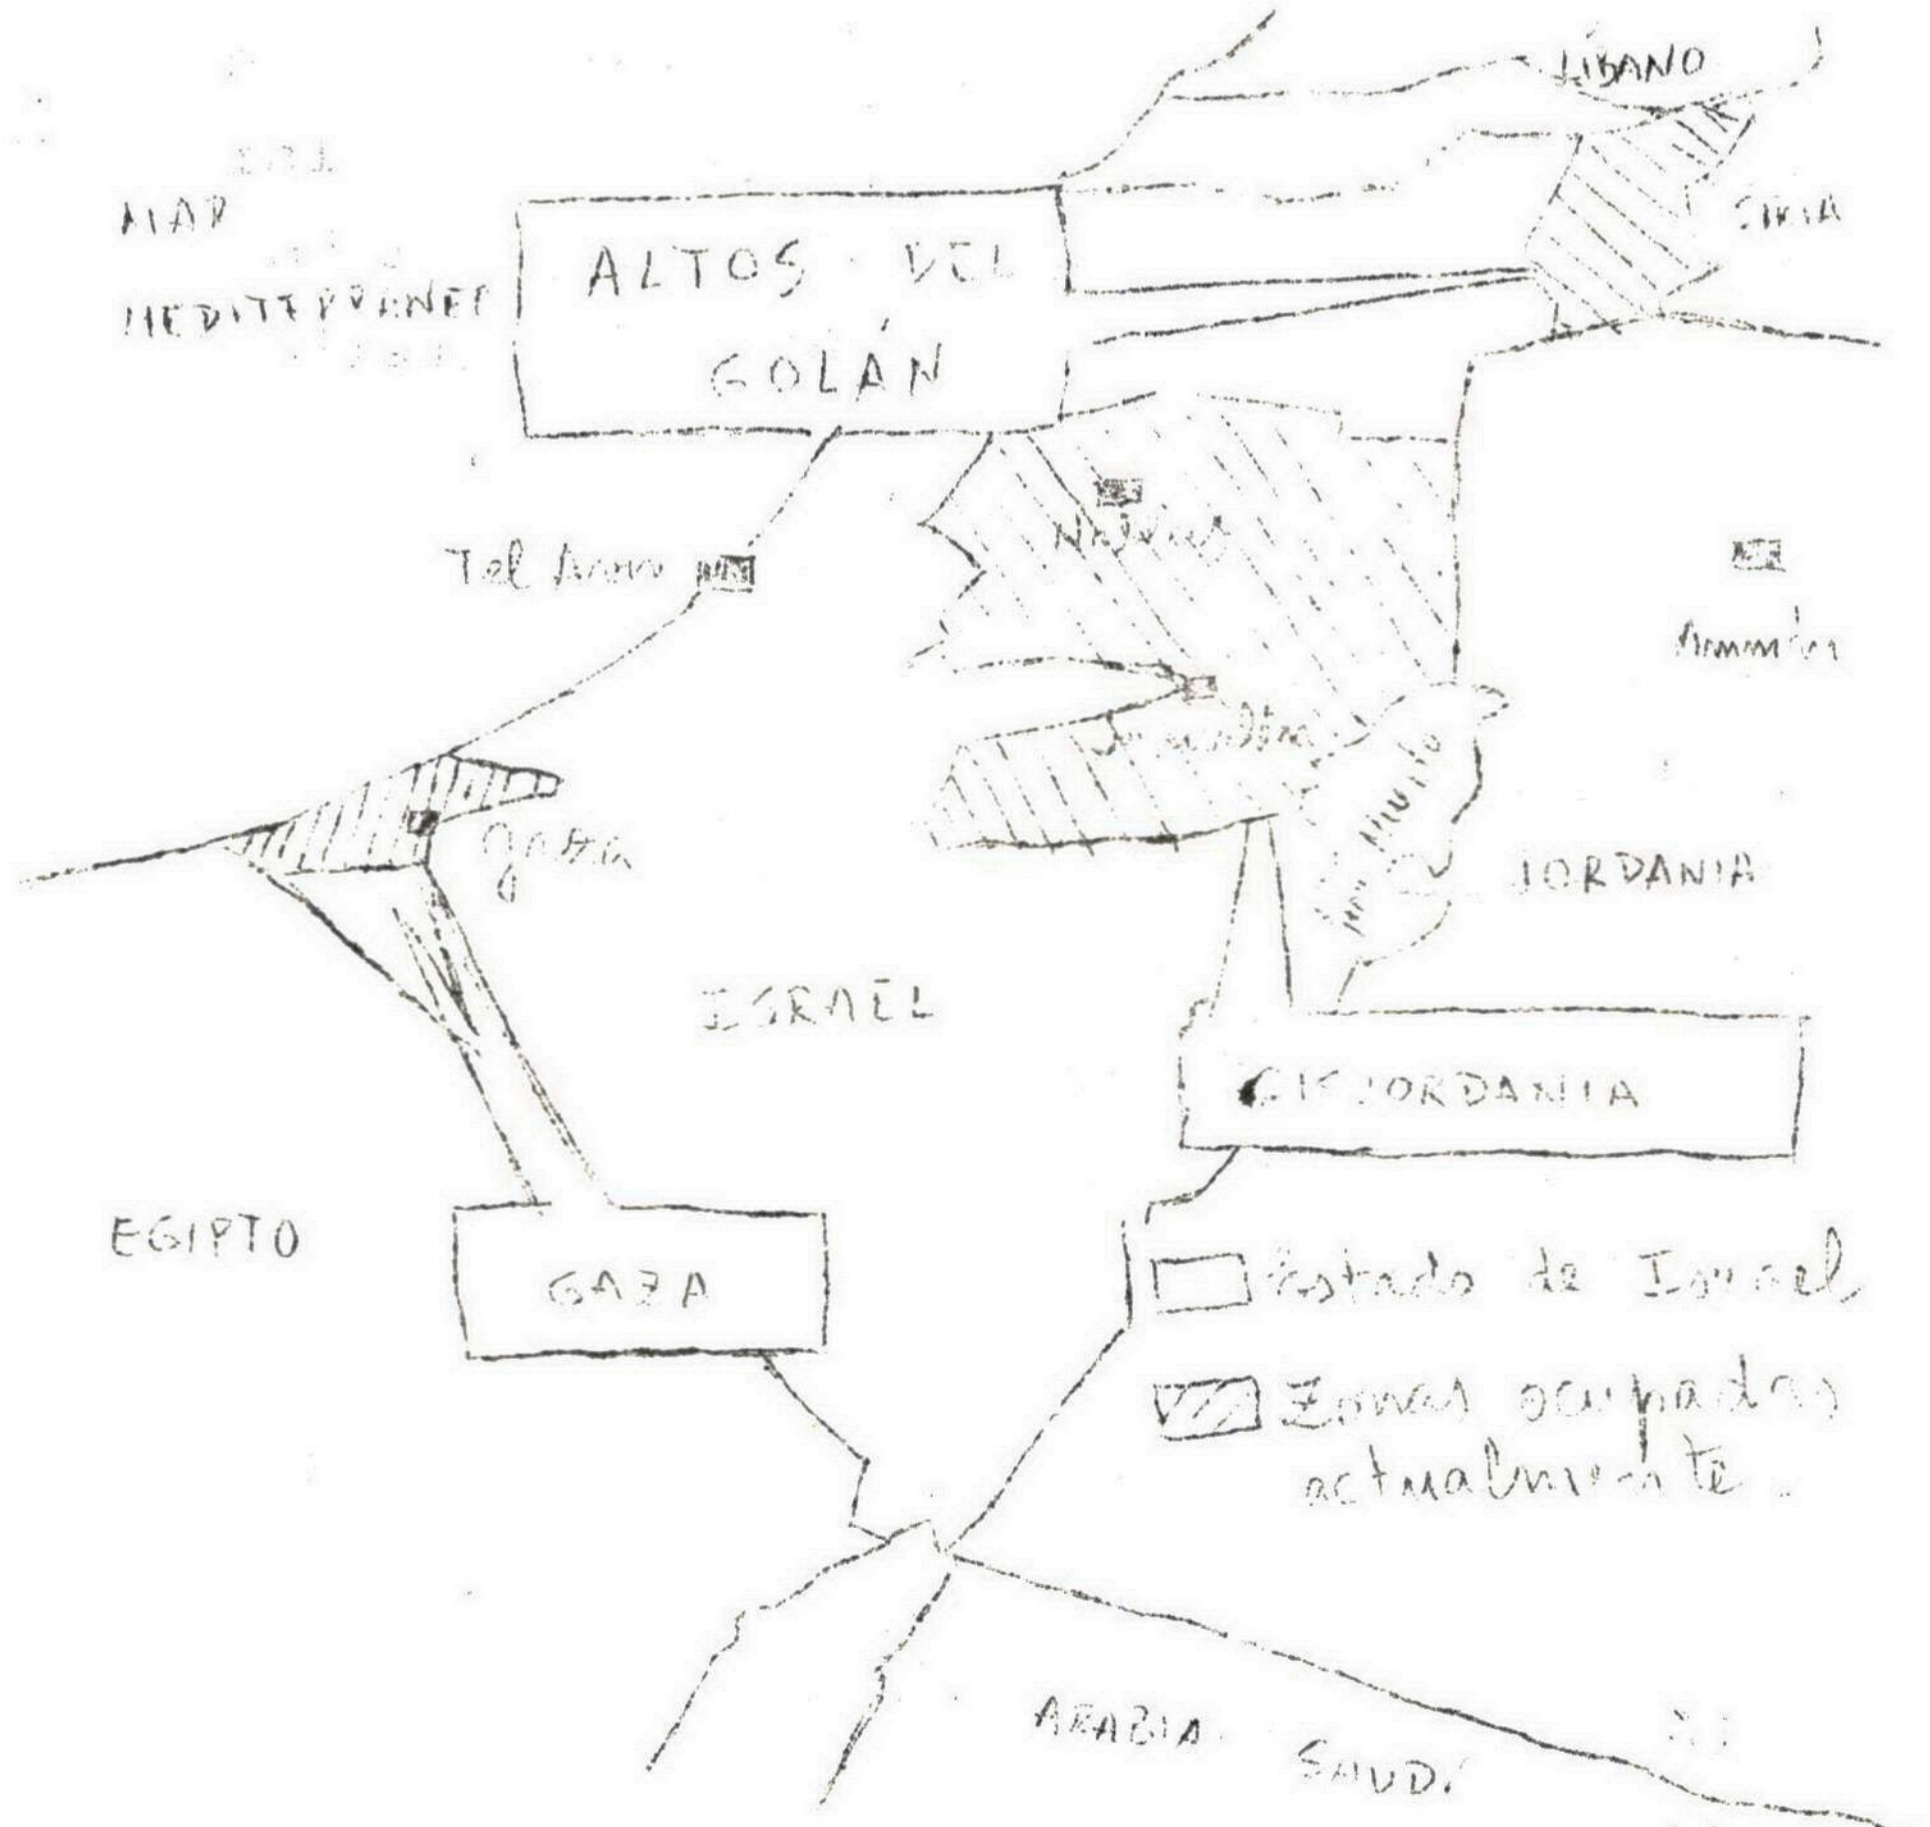 LÍBANO
MAR
MEDITERRANEO
SIRIA
ALTOS DEL
GOLÁN
Tel Aviv
Nablus
Ammán
Jerusalén
Gaza
Mar Muerto
JORDANIA
ISRAEL
CISJORDANIA
EGIPTO
GAZA
Estado de Israel
Zonas ocupadas
actualmente.
ARABIA SAUDÍ